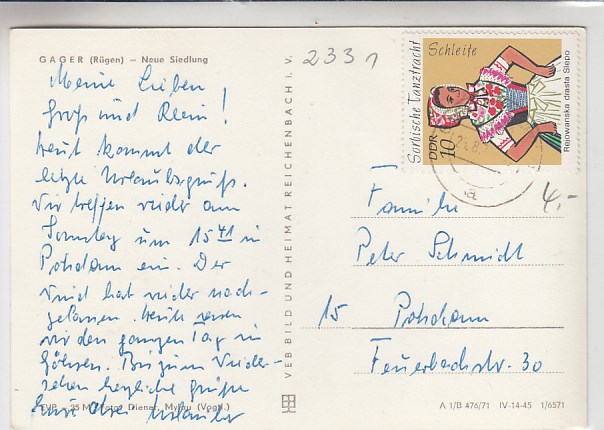 GAGER (Rügen) — Neue Siedlung
Meine Lieben
Groß und Klein!
heut kommt der
letzte Urlaubsgruß.
Wir treffen wieder am
Sonntag um 15 41 in
Potsdam ein. Der
Wind hat wieder nach-
gelassen. Heute waren
wir den ganzen Tag in
Göhren. Bis zum Wieder-
sehen herzliche Grüße
Eure drei Urlauber
EVP -.25 M Foto: Diener, Mylau (Vogtl.)
VEB BILD UND HEIMAT REICHENBACH I. V.
2331
Sorbische Tanztracht
Schleife
DDR 10
Rejowanska drasta Slepo
4,-
Familie
Peter Schmidt
15 Potsdam
Feuerbachstr. 30
A 1/B 476/71 IV-14-45 1/6571